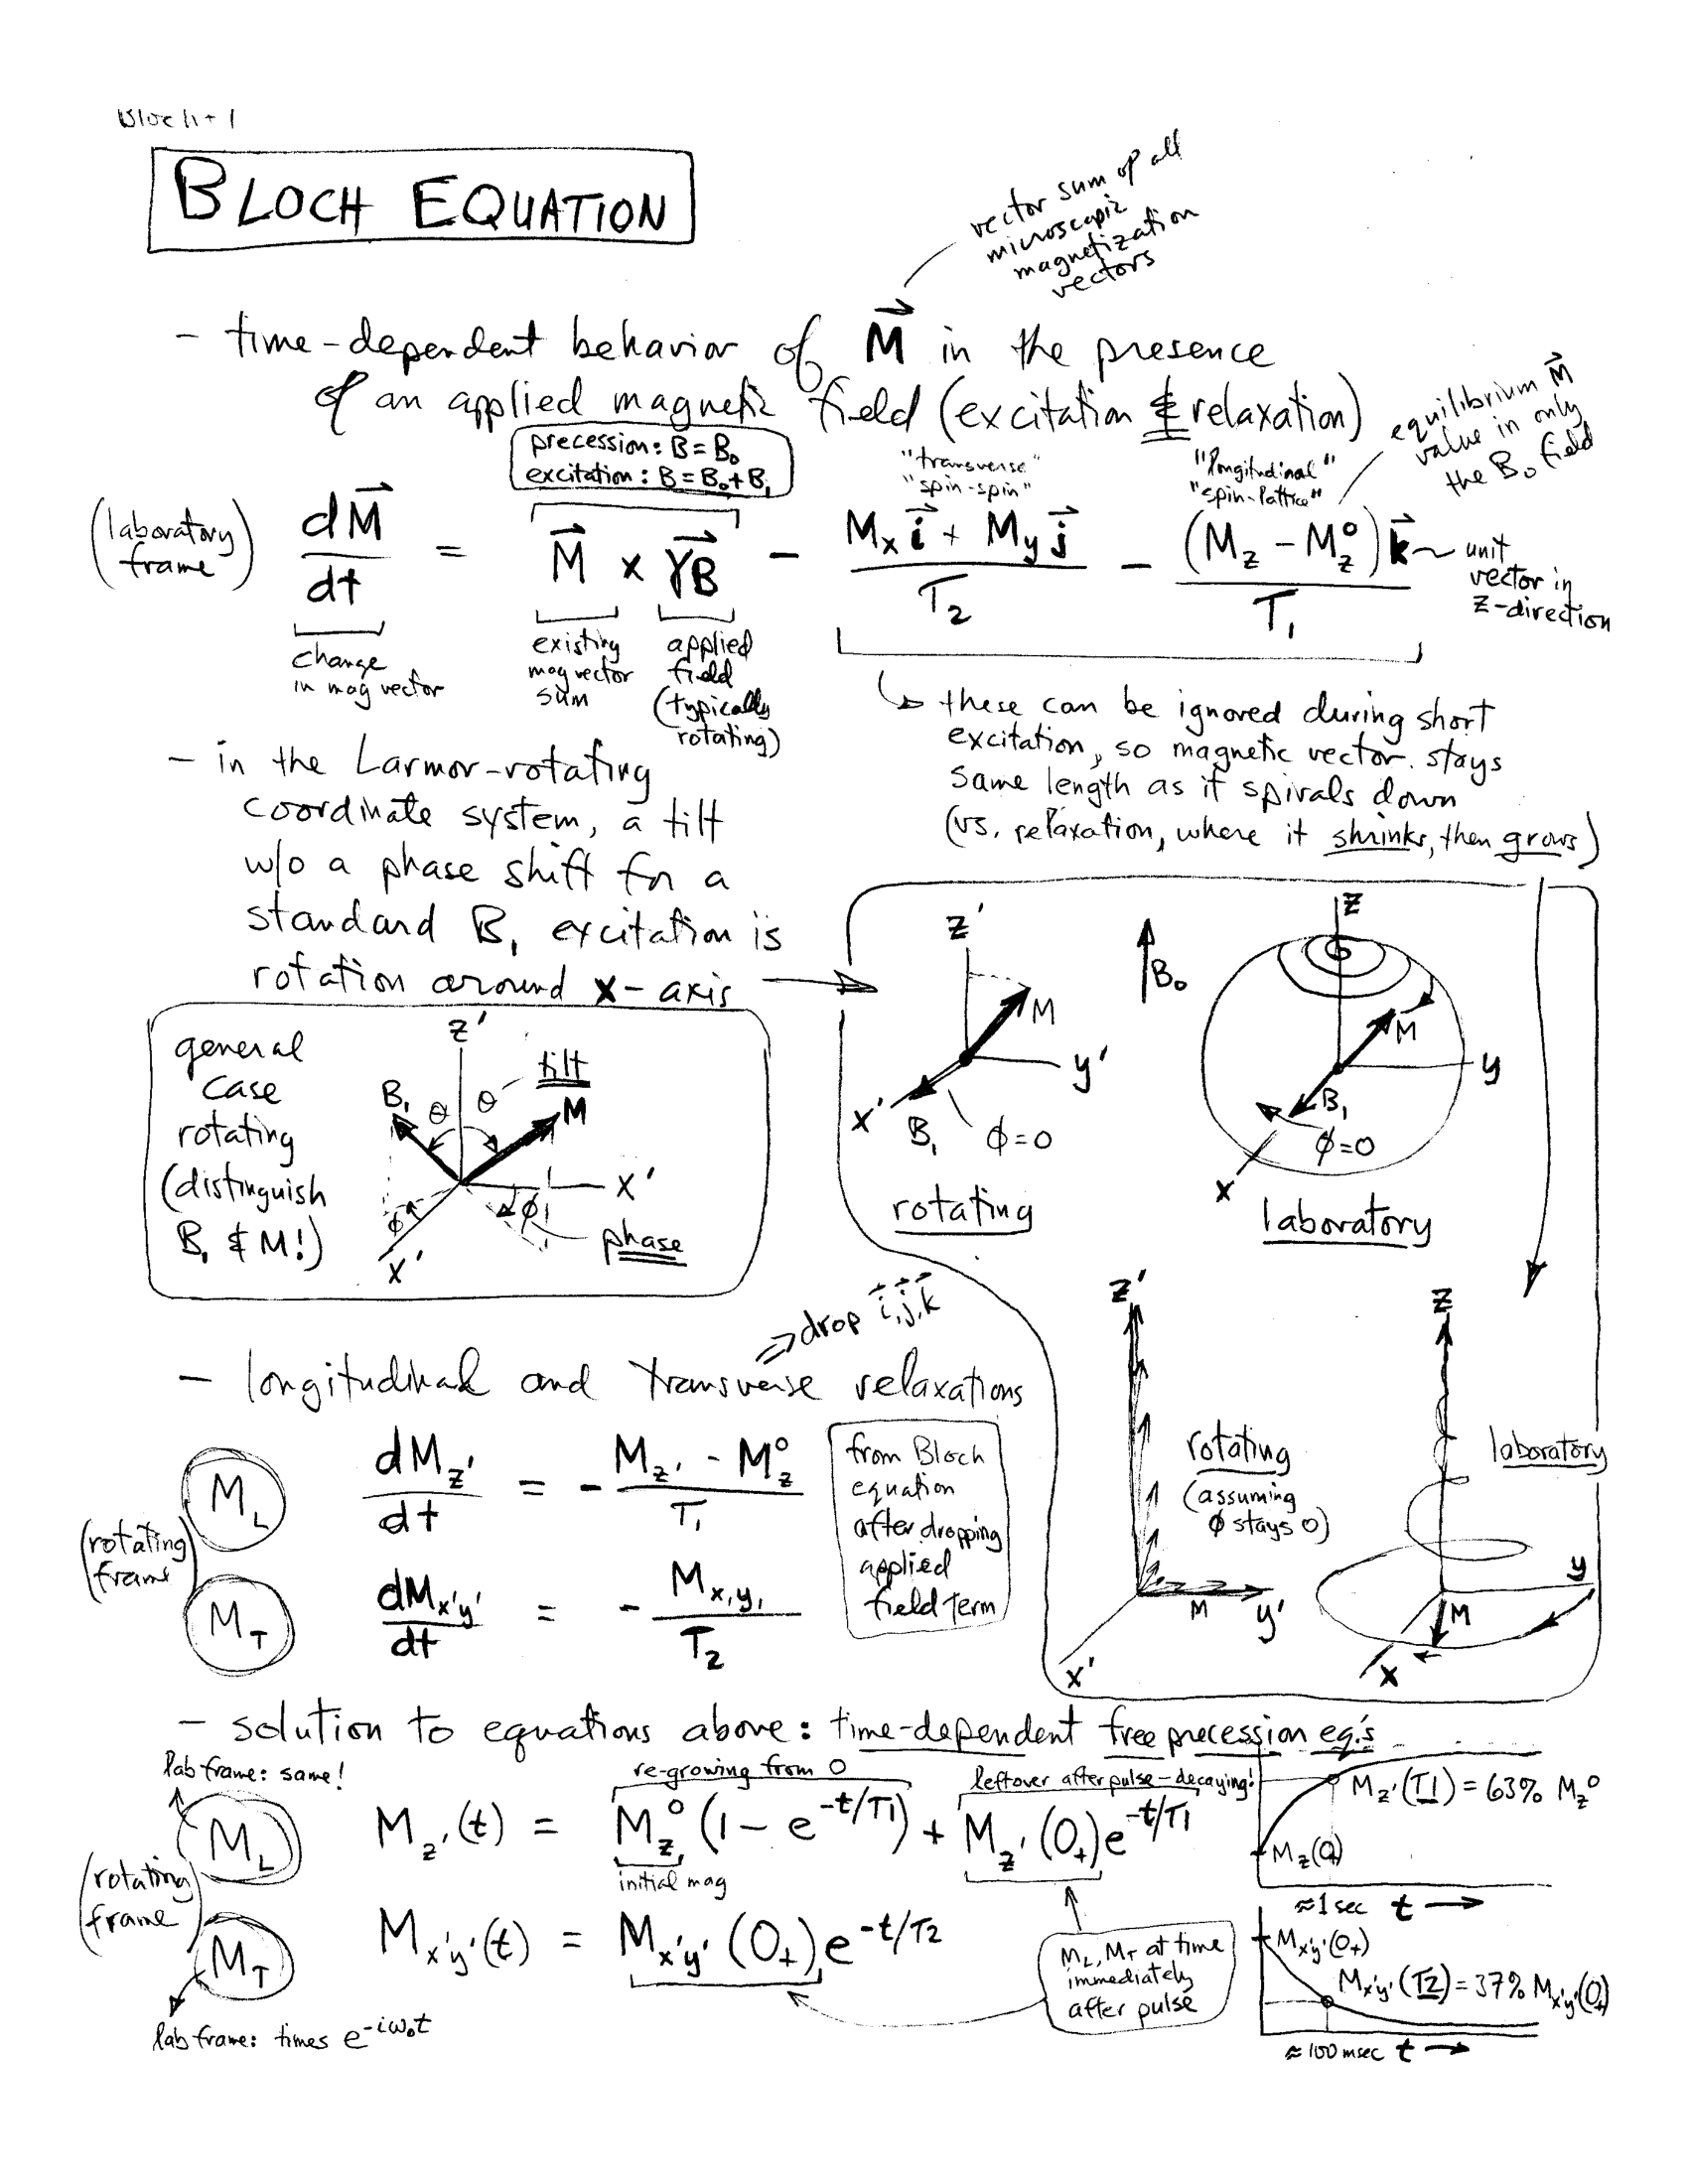 Bloch + 1
BLOCH EQUATION
vector sum of all
microscopic
magnetization
vectors
– time-dependent behavior of M⃗ in the presence
of an applied magnetic field (excitation & relaxation)
precession: B = B₀
excitation: B = B₀ + B₁
"transverse"
"spin-spin"
"longitudinal"
"spin-lattice"
equilibrium M⃗
value in only
the B₀ field
(laboratory frame) dM⃗/dt = M⃗ x γB⃗ – (Mₓ i⃗ + M_y j⃗)/T₂ – (M_z – M_z⁰) k⃗/T₁
unit
vector in
z-direction
change
in mag vector
existing
mag vector
sum
applied
field
(typically
rotating)
these can be ignored during short
excitation, so magnetic vector stays
same length as it spirals down
(vs. relaxation, where it shrinks, then grows)
– in the Larmor-rotating
coordinate system, a tilt
w/o a phase shift for a
standard B₁ excitation is
rotation around x-axis
z'
M
y'
x'
B₁
φ=0
rotating
B₀
z
M
y
B₁
φ=0
x
laboratory
general
case
rotating
(distinguish
B₁ & M!)
z'
tilt
B₁
θ
θ
M
x'
φ
φ
phase
x'
z'
rotating
(assuming
φ stays 0)
M
y'
x'
z
laboratory
y
M
x
⇒ drop i⃗, j⃗, k⃗
– longitudinal and transverse relaxations
(rotating frame)
M_L dM_z'/dt = – (M_z' – M_z⁰)/T₁
M_T dM_x'y'/dt = – M_x'y'/T₂
from Bloch
equation
after dropping
applied
field term
– solution to equations above: time-dependent free precession eq's
lab frame: same!
re-growing from 0
leftover after pulse – decaying!
(rotating frame)
M_L M_z'(t) = M_z⁰ (1 – e^(-t/T1)) + M_z'(0₊) e^(-t/T1)
initial mag
M_T M_x'y'(t) = M_x'y'(0₊) e^(-t/T2)
M_L, M_T at time
immediately
after pulse
lab frame: times e^(-iω₀t)
M_z'(T1) = 63% M_z⁰
M_z(0₊)
≈1 sec t →
M_x'y'(0₊)
M_x'y'(T2) = 37% M_x'y'(0₊)
≈100 msec t →